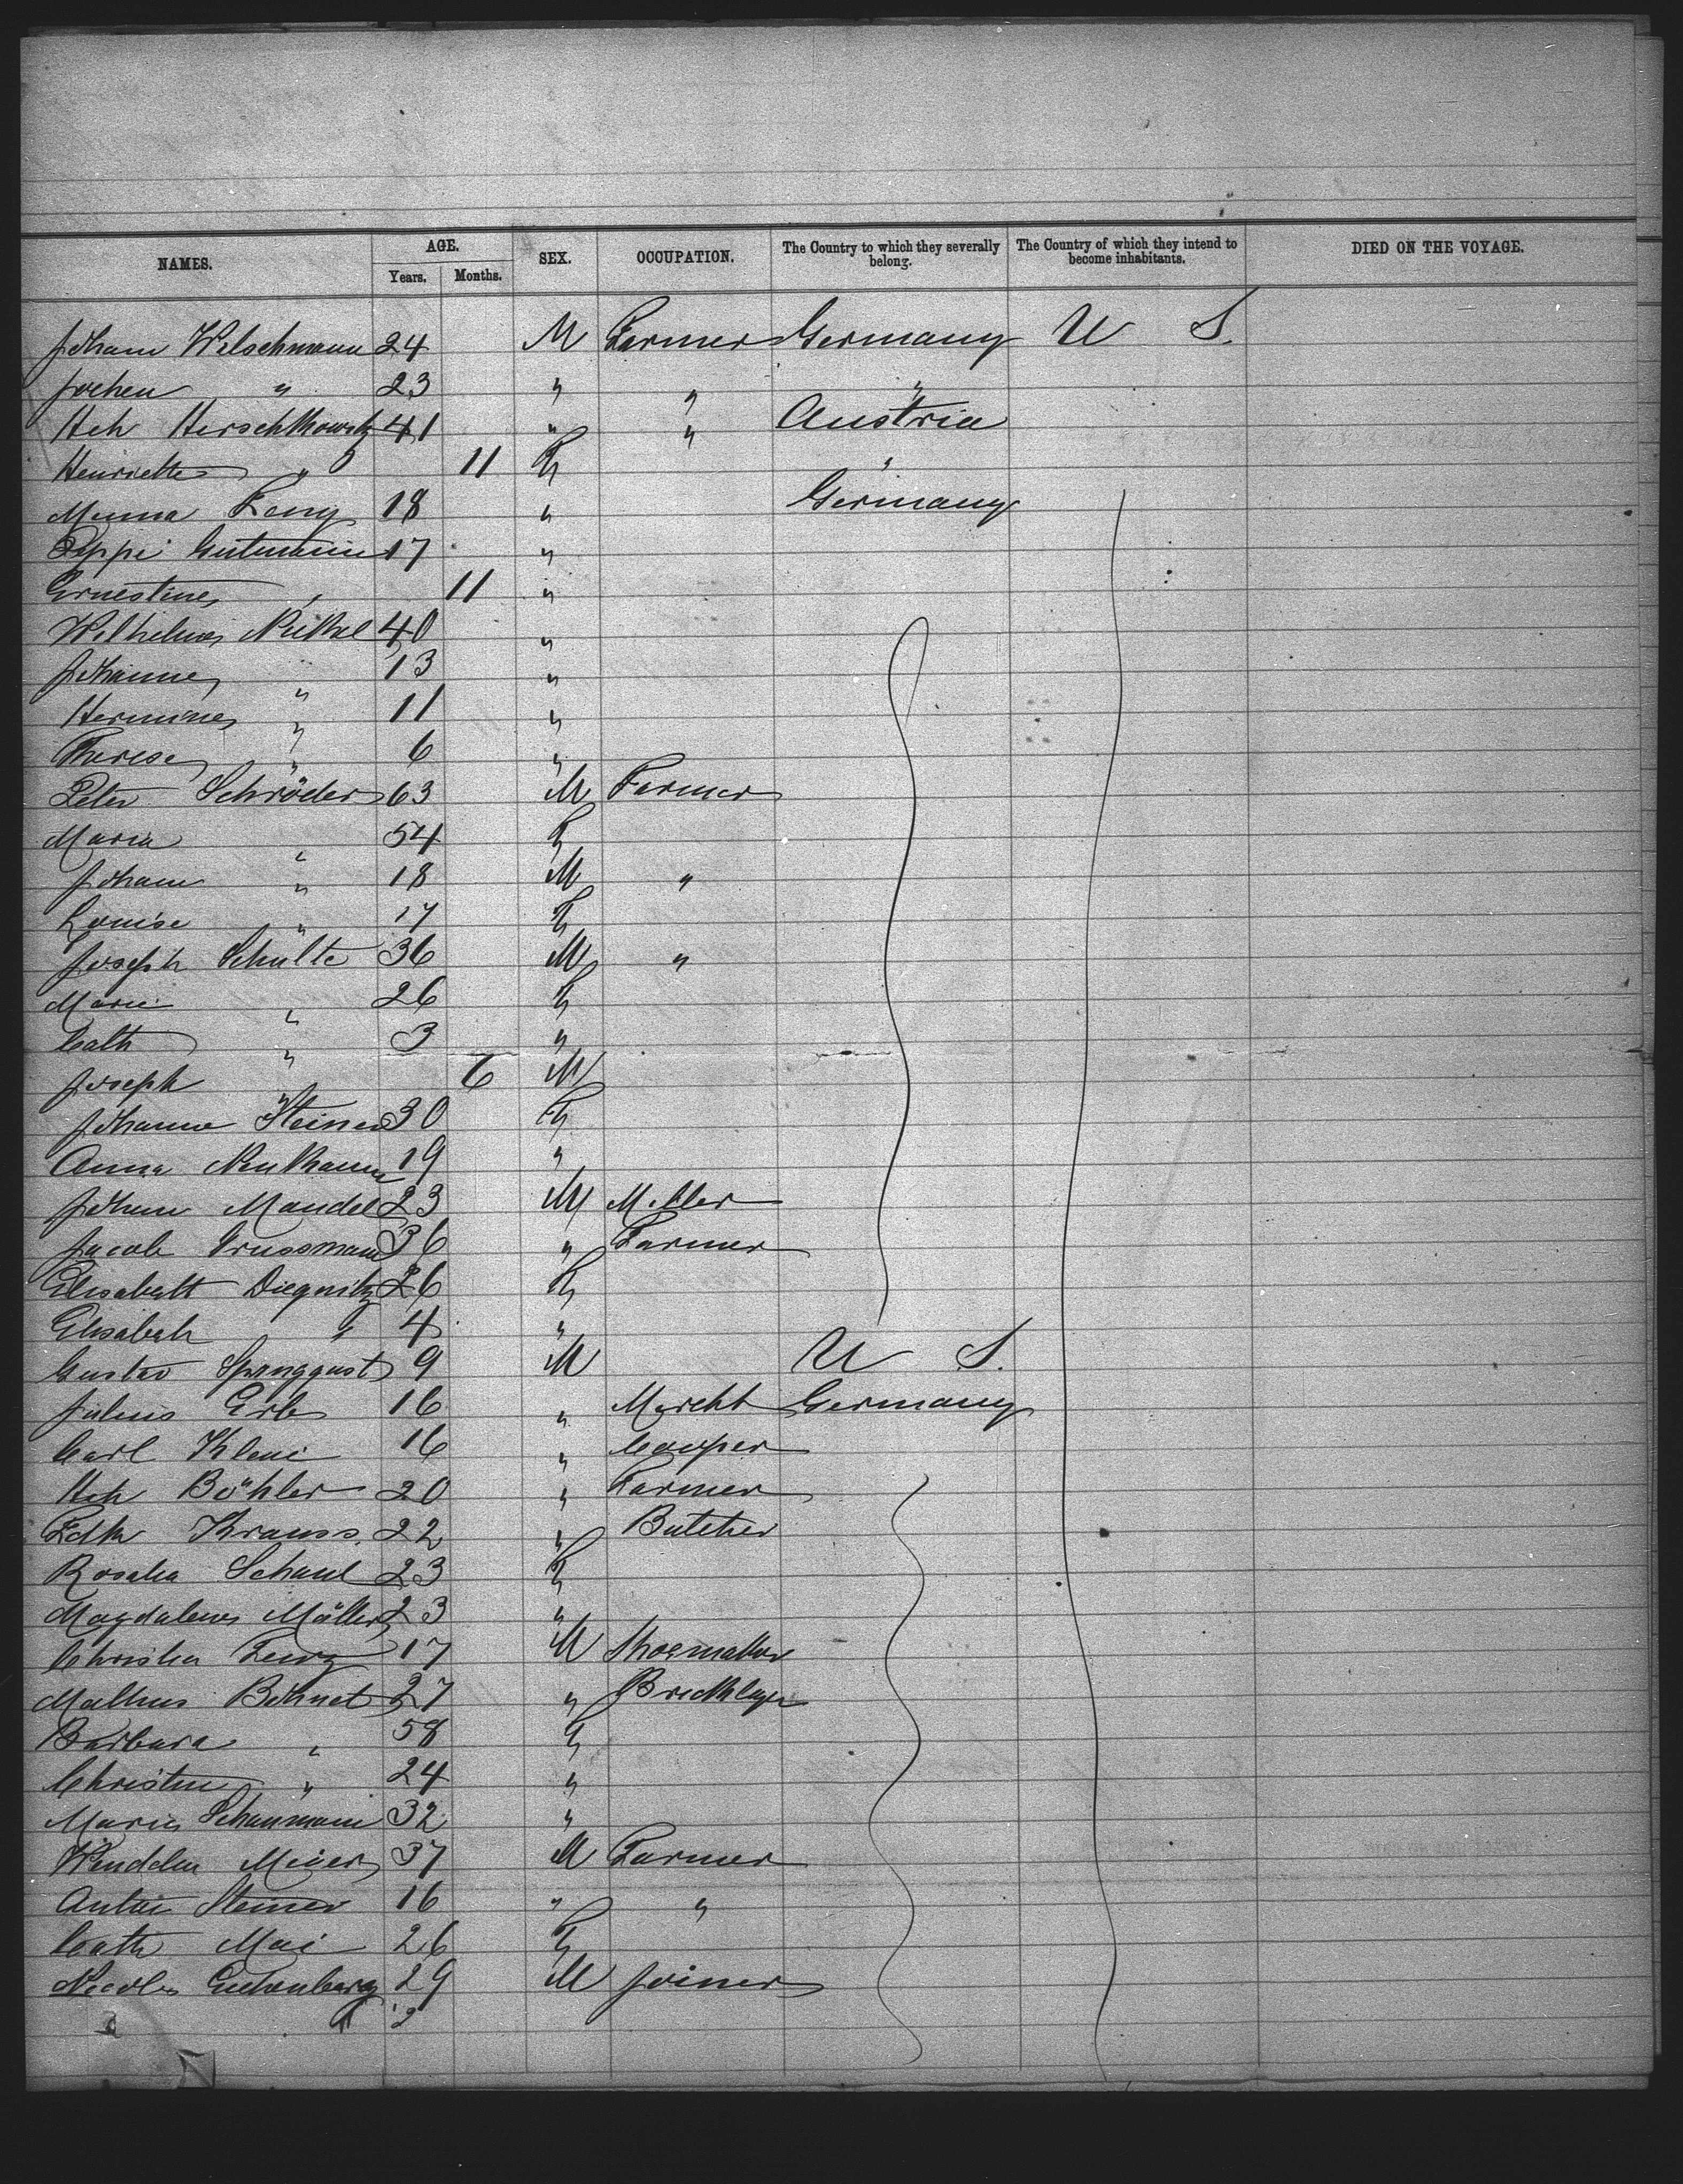 NAMES. AGE. SEX. OCCUPATION. The Country to which they severally belong. The Country of which they intend to become inhabitants. DIED ON THE VOYAGE.
Years. Months.
Johann Welschmann 24 M Farmer Germany U S.
Jochen " 23 " " "
Hch Herschkowitz 41 " " Austria
Henriette " 11 F "
Minna Leng 18 " Germany
Peppi Gutmann 17 "
Ernestine " 11 "
Wilhelmine Nickel 40 "
Johanne " 13 "
Hermine " 11 "
Therese " 6 "
Peter Schröder 63 M Farmer
Maria " 54 F
Johann " 18 M "
Louise " 17 F
Joseph Schulte 36 M "
Marie " 26 F
Cath " 3 "
Joseph " 6 M
Johanne Steiner 30 F
Anna 19 "
Johann Mandel 23 M Miller
Jacob 36 " Farmer
Elisabeth Diegnitz 26 F
Elisabeth " 4 "
Gustav 9 M U S.
Julius Erb 16 " Mercht Germany
Carl Klein 16 " Cooper
Hch Böhler 20 " Farmer
Krauss. 22 " Butcher
Rosalia Schaul 23 F
Magdalena Müller 23 "
Christian 17 M Shoemaker
Mathias Bohnet 27 " Bricklayer
Barbara " 58 F
Christine " 24 "
Marie Schaumann 32 "
Wendelin Meier 37 M Farmer
Anton Steiner 16 " "
Cath Mai 26 F
Nicolas 29 M Joiner